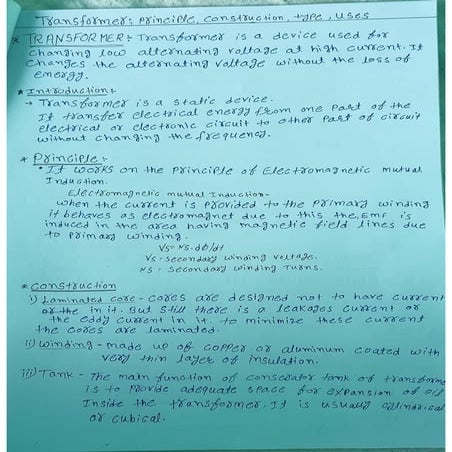 Transformer: Principle, construction, type, uses
* TRANSFORMER:- Transformer is a device used for
changing low alternating voltage at high current. It
changes the alternating voltage without the loss of
energy.
* Introduction:-
→ Transformer is a static device.
It transfer electrical energy from one part of the
electrical or electronic circuit to other part of circuit
without changing the frequency.
* Principle:-
• It works on the principle of Electromagnetic mutual
Induction.
Electromagnetic mutual Induction-
when the current is provided to the primary winding
it behaves as electromagnet due to this the, EMF is
induced in the area having magnetic field lines due
to primary winding.
Vs = Ns. dΦ/dt
Vs = secondary winding voltage.
Ns = secondary winding Turns.
* construction
i) Laminated core - cores are designed not to have current
in it. But still there is a leakages current or
the eddy current in it. to minimize these current
the cores are laminated.
ii) winding - made up of copper or aluminum coated with
very thin layer of insulation.
iii) Tank - The main function of conserator tank of transforme
is to provide adequate space for expansion of oil
Inside the transformer. It is usually cylindrical
or cubical.